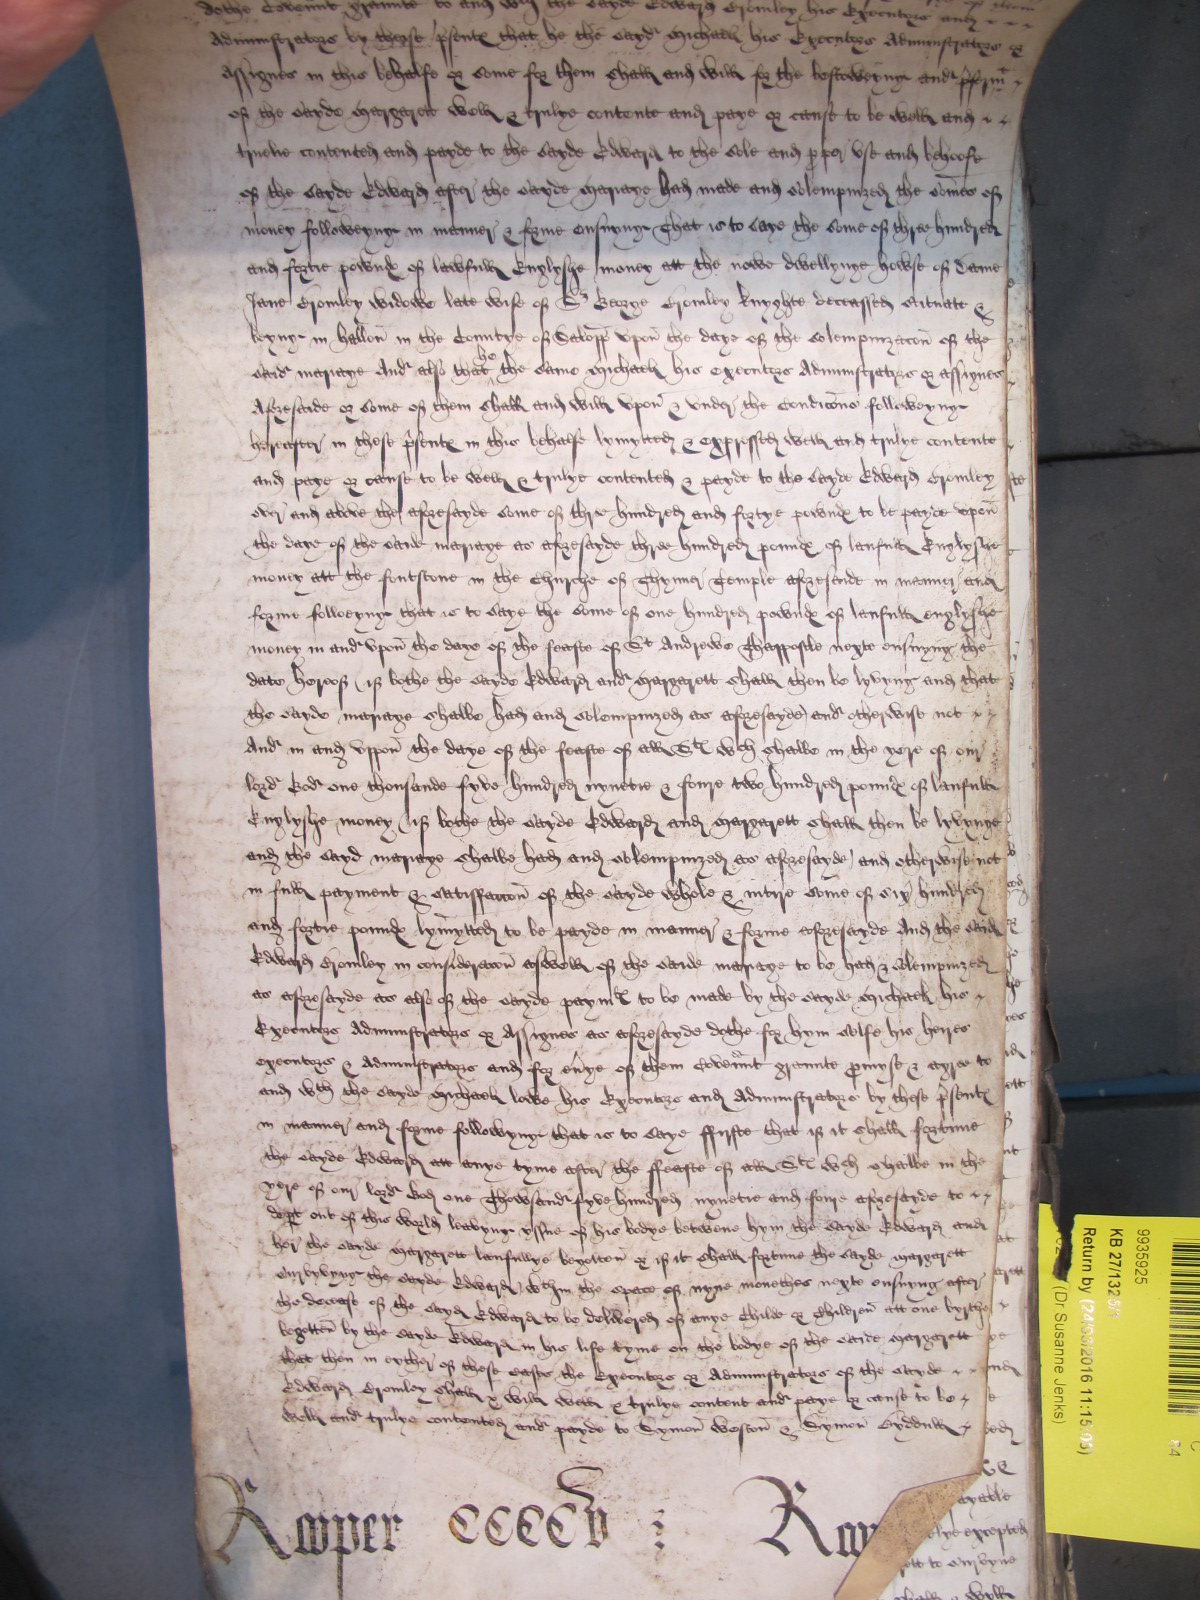 dothe Covennt graunte to and wth the sayde Edward Bromley his Executors and
Administrators by these psentes that he the sayd Michaell his Executors Administrators or
Assignes in this behalfe or some for them shall and will for the bestoweyng and pferm
of the sayde Margarett well & trulye contente and paye or cause to be well and
trulie contented and payde to the sayde Edward to the sole and pper vse and behoofe
of the sayde Edward after the sayde mariage had made and solempnized the somes of
money followeyng in manner & forme ensuyng That is to saye the some of three hundred
and fortie powndes of lawfull Englyshe money att the nowe dwellynge howse of Dame
Jane Bromley widowe late wife of Sr George Bromley knyghte deceassed scituatt &
beyng in hallon in the Countye of Salopp vpon the daye of the solempnizacon of the
said mariage And also that he the same Michaell his executors Administrators or assignes
Aforesaide or some of them shall and will vpon & vnder the Condicons followeyng
hereafter in these psentes in this behalfe lymytted & expressed well and trulye contente
and paye or cause to be well & trulye contented & payde to the sayde Edward Bromley
over and above the aforesayde some of thre hundred and fortye powndes to be payde vpon
the daye of the saide mariage as aforesayde three hundred poundes of lawfull Englyshe
money att the fontstone in the Churche of Thynner Temple aforesaide in manner and
forme folloeyng that is to saye the some of one hundred powndes of lawfull englyshe
money in and vpon the daye of the feaste of St Andrewe Thappostle nexte ensuyng the
date hereof if bothe the sayde Edward and Margarett shall then be lyvyng and that
the sayde mariage shalbe had and solempnized as aforesayde and otherwise not
And in and vppon the daye of the feaste of all Stes wch shalbe in the yere of our
lord God one thousande fyve hundred nynetie & foure two hundred poundes of lawfull
Englyshe money if bothe the sayde Edward and Margarett shall then be lyvynge
and the sayd mariage shalbe had and solempnized as aforesayde and otherwise not
in full payment & satisfaccon of the sayde whole & intire some of six hundred
and fortie poundes lymytted to be payde in manner & forme aforesayde And the said
Edward Bromley in consideracon aswell of the saide mariage to be had & solempnized
as aforesayde as also of the sayde paymt to be made by the sayde Michaell his
Executors Administrators or Assignes as aforesayde dothe for hym selfe his heires
executors & Administrators and for euye of them Covennt graunte promyse & agree to
and wth the sayde Michaell lowe his Executors and Administrators by these psentes
in manner and forme followyng that is to saye ffirste that if it shall fortune
the sayde Edward att anye tyme after the ffeaste of all Stes wch shalbe in the
yere of our lord God one Thowsand fyve hundred nynetie and foure aforesayde to
dept out of this world leavyng yssue of his bodye betwene hym the sayde Edward and
her the sayde Margarett lawfullye begotten or if it shall fortune the sayde Margarett
survyvyng the sayde Edward wthin the space of nyne monethes nexte ensuyng after
the decease of the sayd Edward to be delivered of anye Childe or Children att one byrthe
begotten by the sayde Edward in his life tyme on the bodye of the saide Margarett
that then in eyther of these cases the Executors or Administrators of the sayde
Edward Bromley shall & will well & trulye content and paye or cause to be
well and trulye contented and payde to Symon Weston & Symon
Roper CCCCV : Ro
9935925
KB 27/1325/1
Return by (24/03/2016 11:15:05)
(Dr Susanne Jenks)